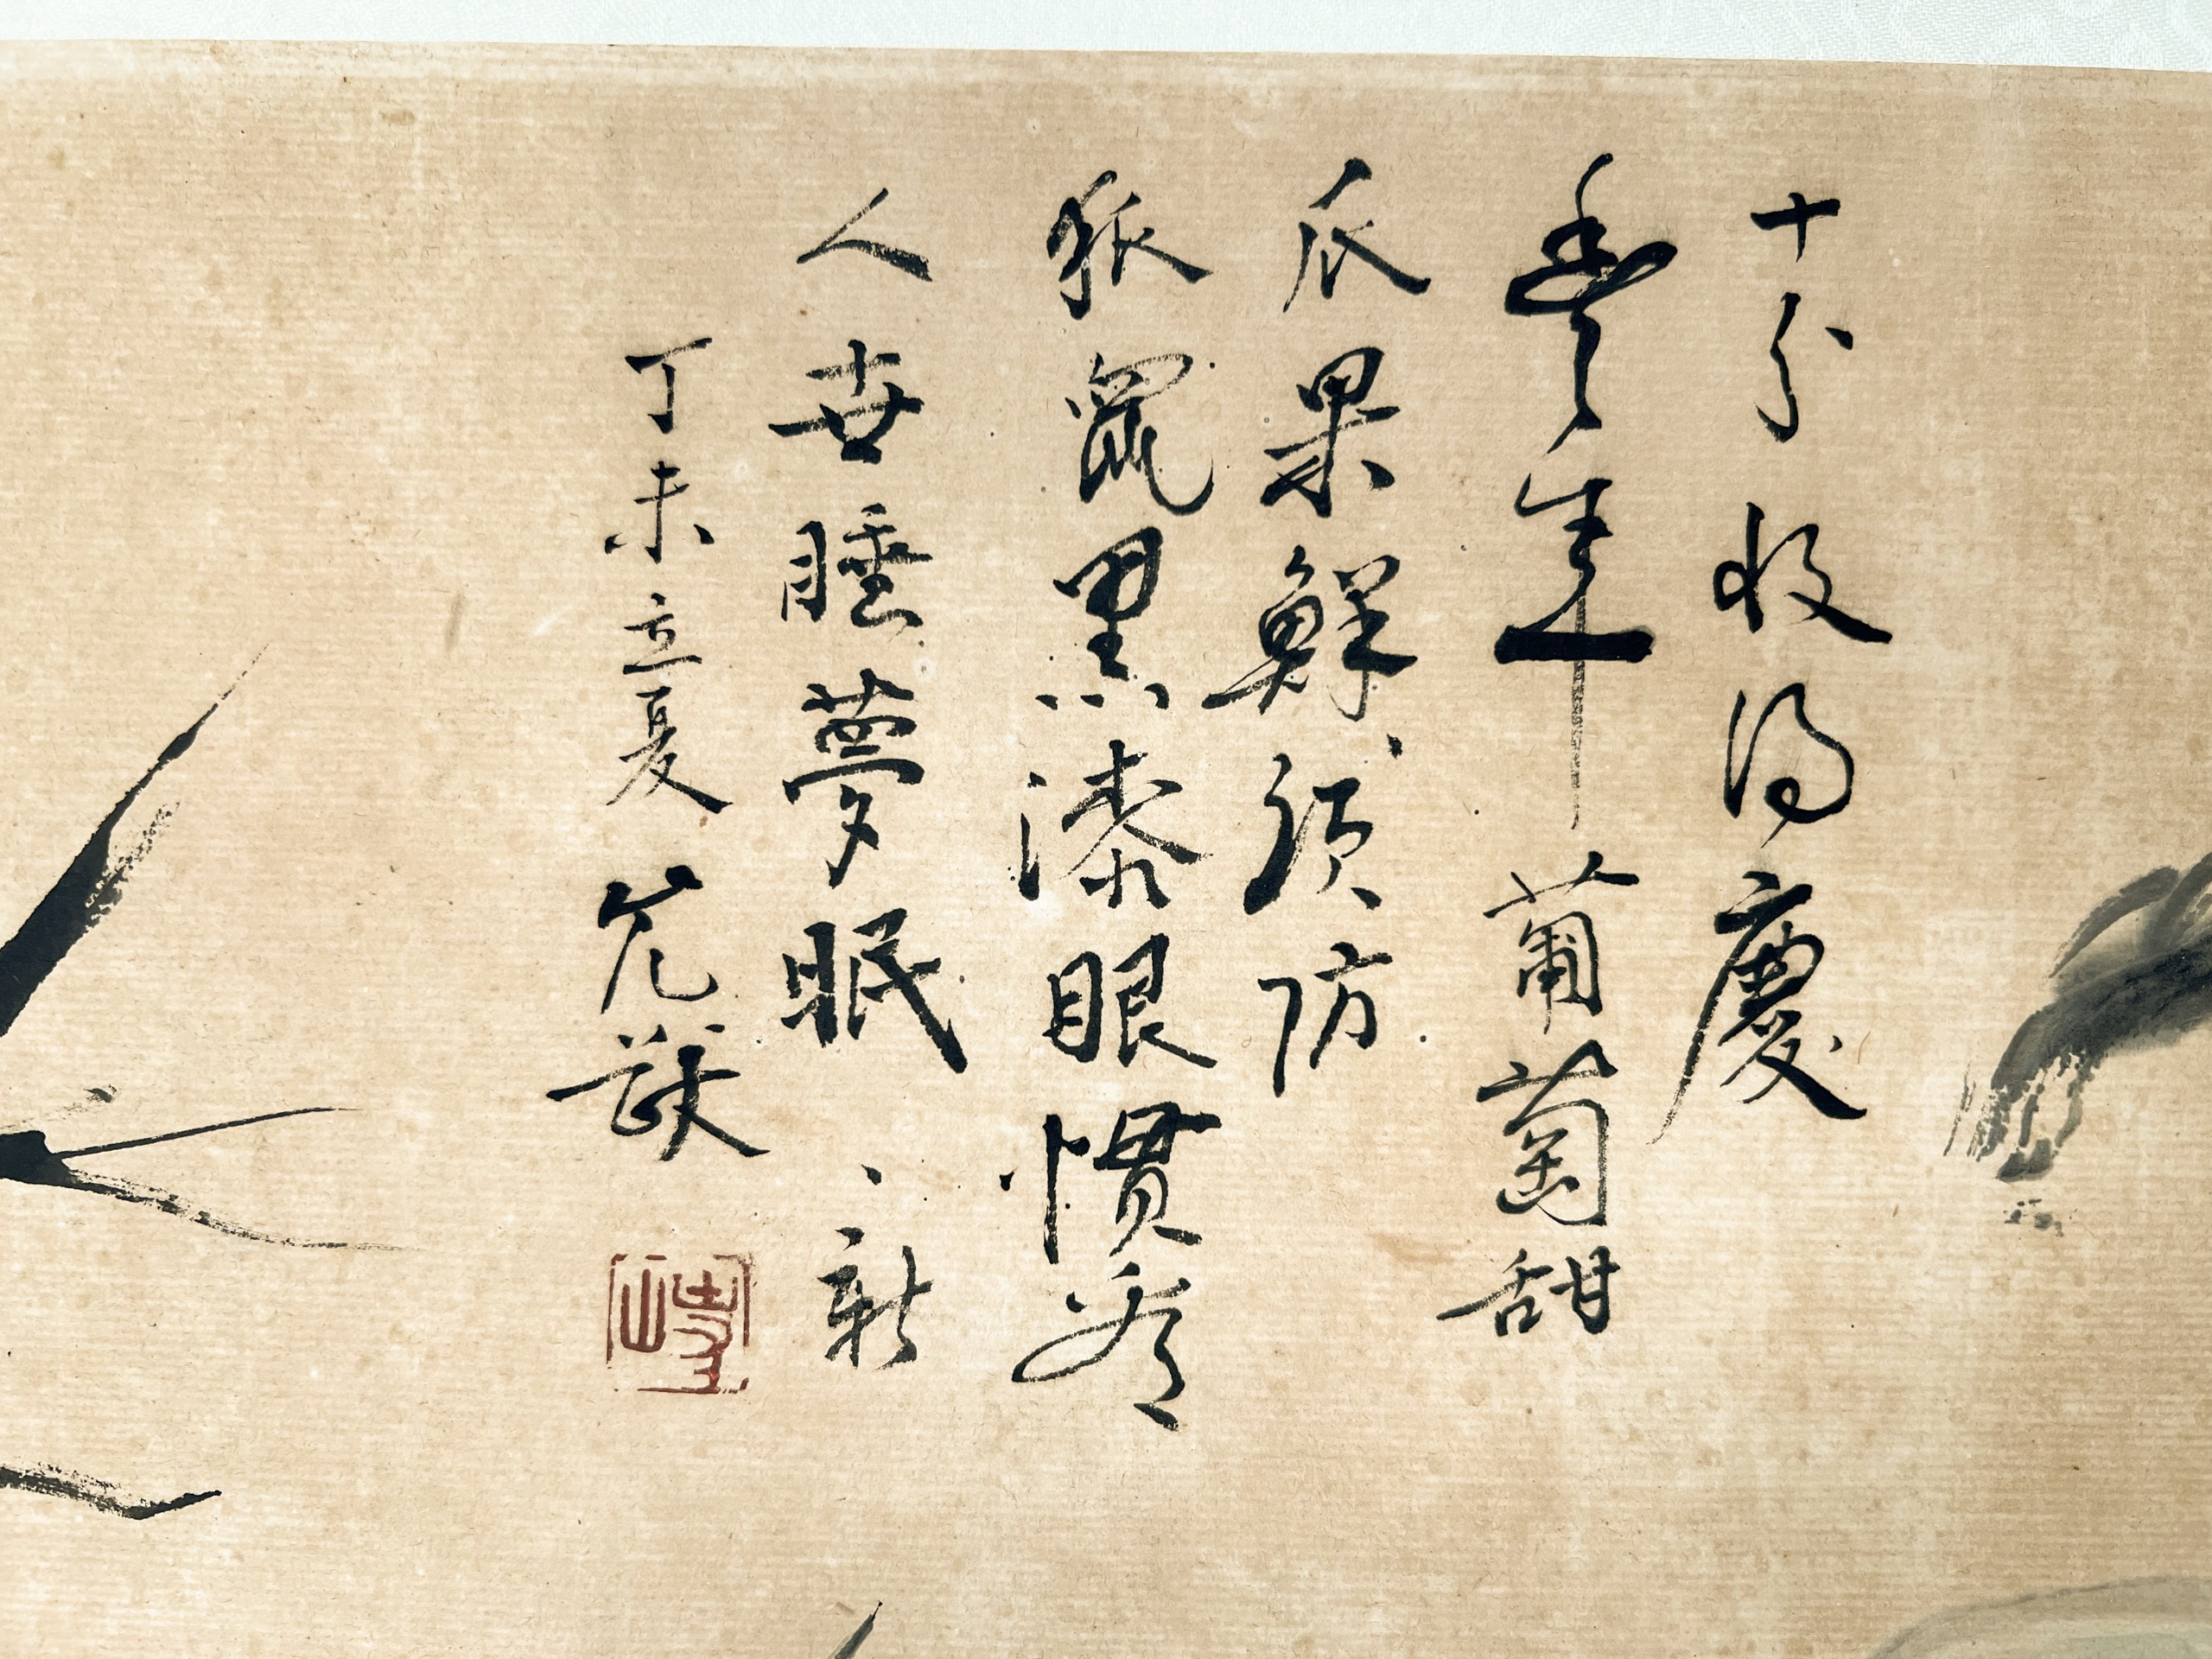 十分收得慶
豐年葡萄甜
瓜果鮮須防
狐鼠黑漆眼慣看
人世睡夢眠新
丁未立夏